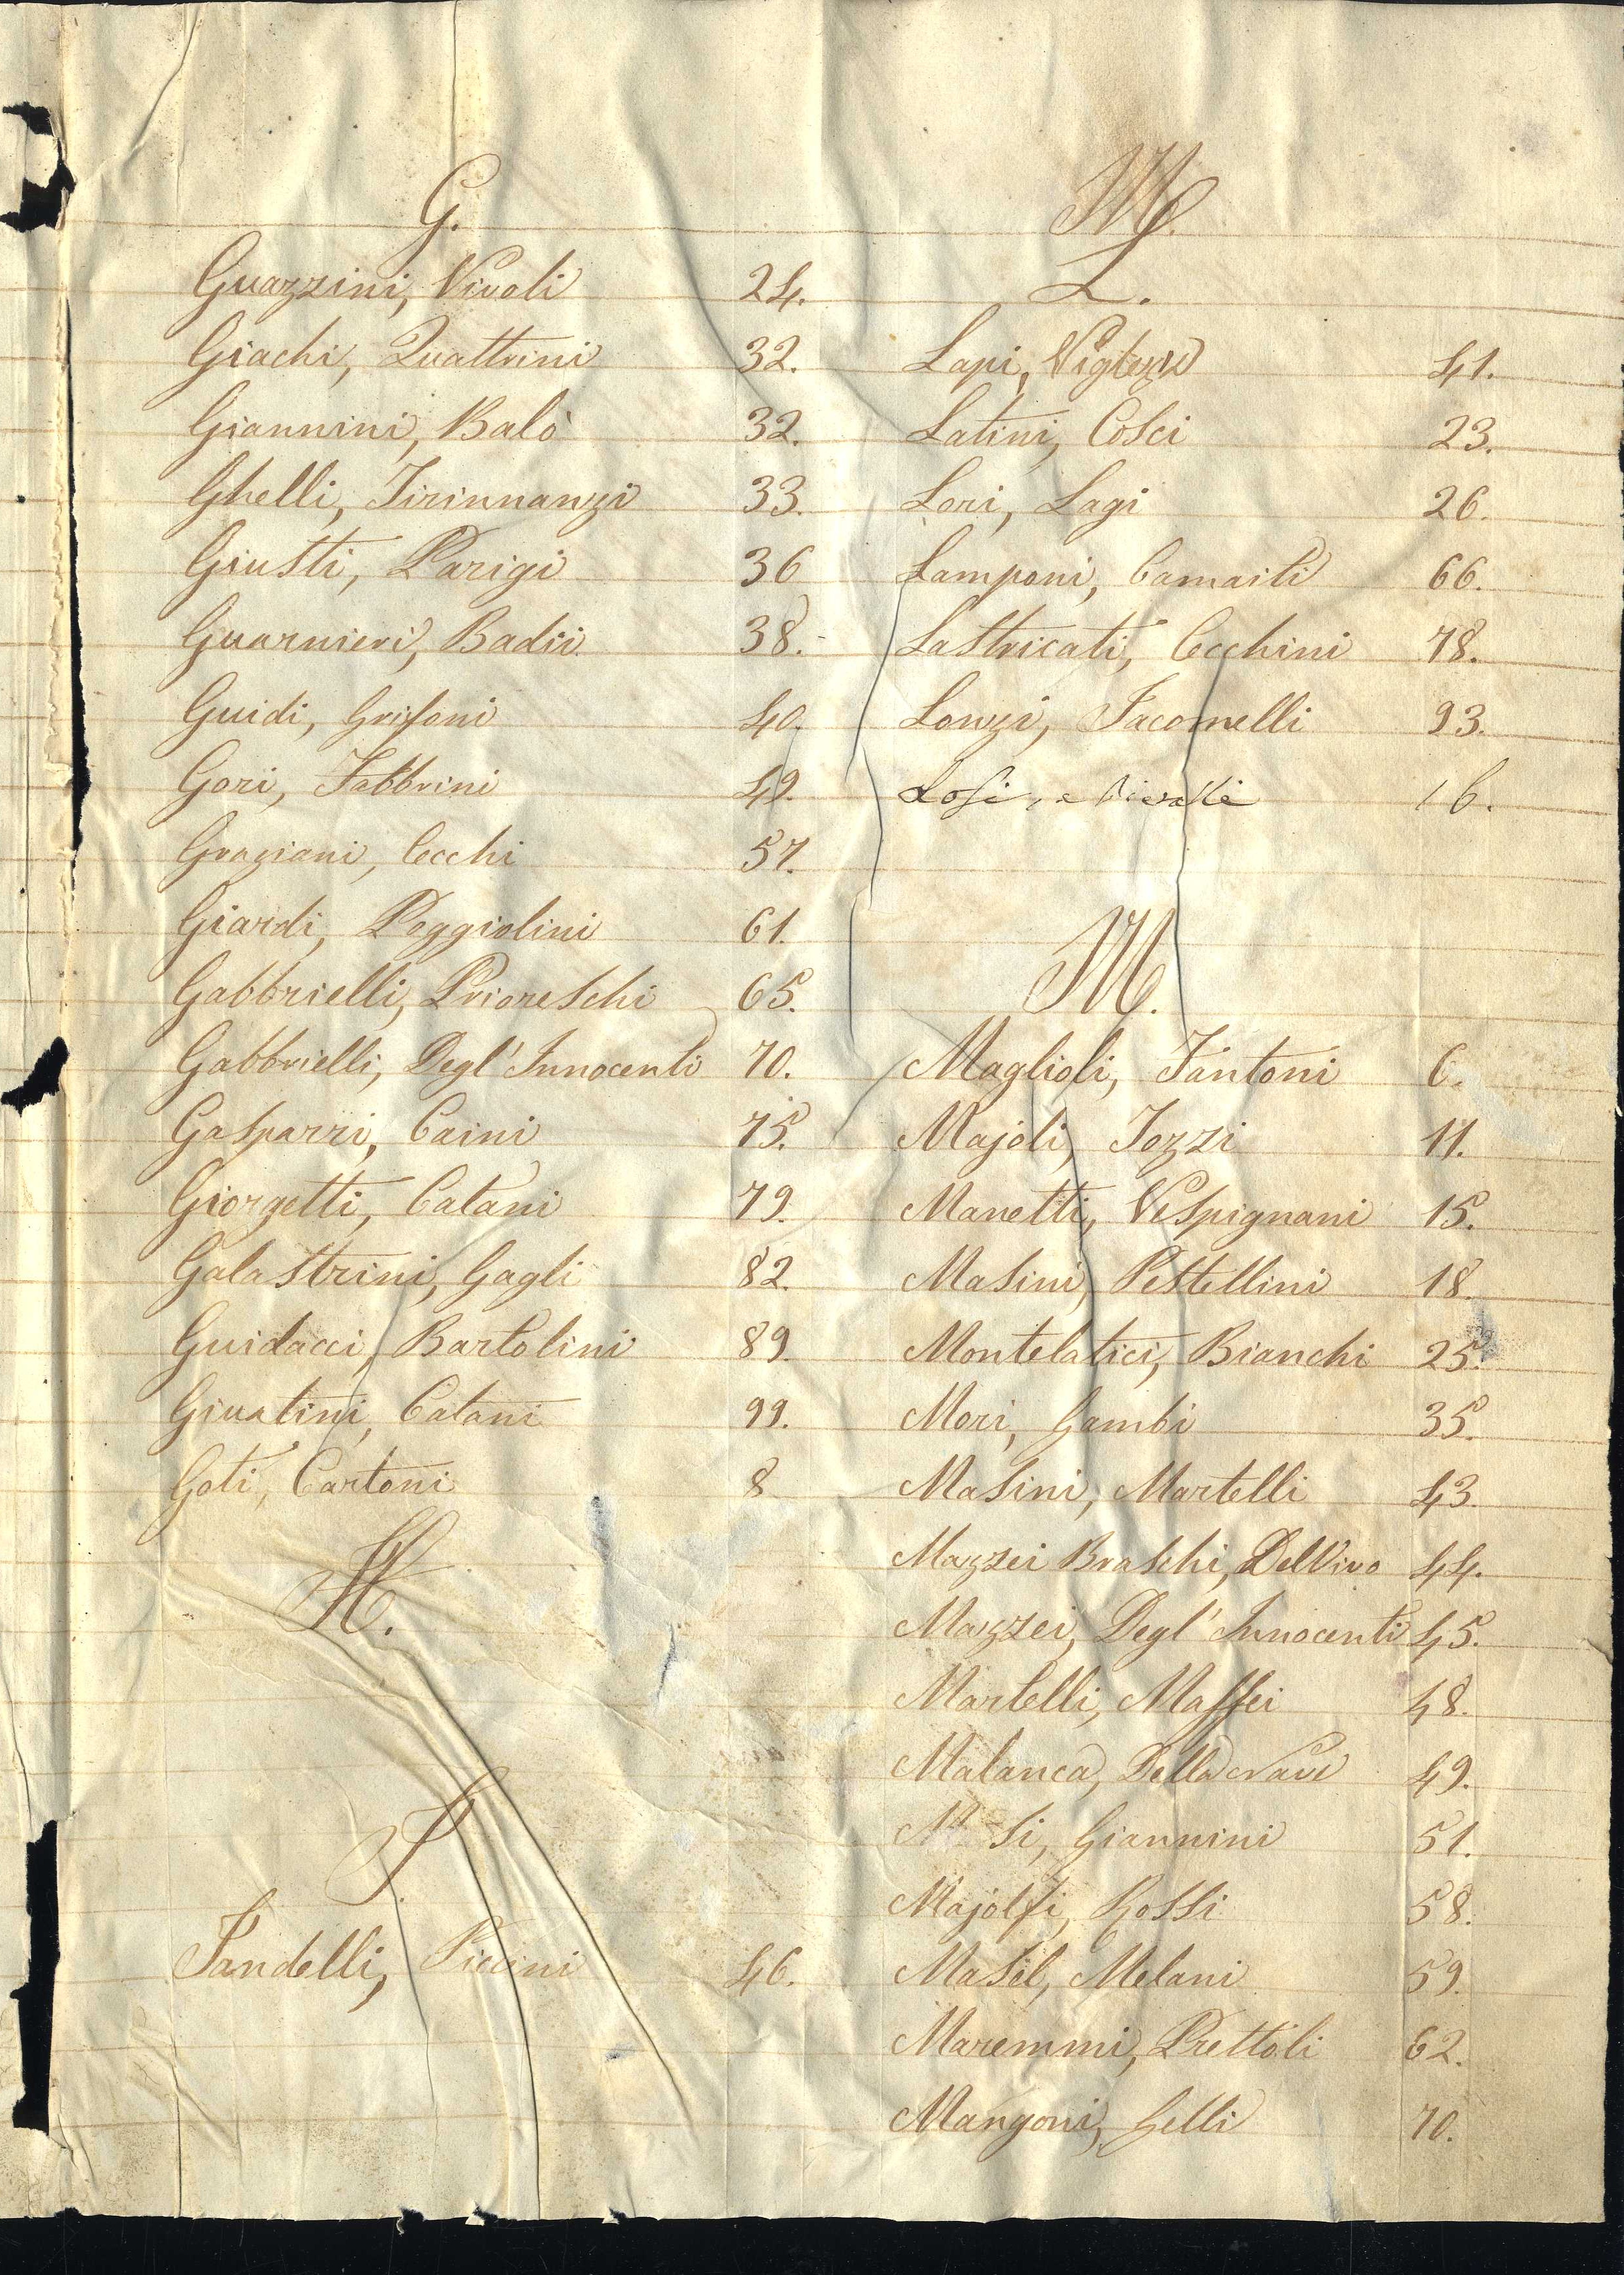 G.
Guazzini, Vivoli 24.
Giachi, Quattrini 32.
Giannini, Balò 32.
Ghelli, Tirinnanzi 33.
Giusti, Parigi 36
Guarnieri, Badii 38.
Guidi, Grifoni 40.
Gori, Fabbrini 49.
Graziani, Cecchi 57.
Giardi, Poggiolini 61.
Gabbrielli, Prioreschi 65.
Gabbrielli, Degl' Innocenti 70.
Gasparri, Caini 75.
Giorgetti, Catani 79.
Galastrini, Gagli 82.
Guidacci, Bartolini 89.
Giustini, Catani 99.
Goti, Cartoni 8
H.
J.
Jandelli, Piccini 46.
M.
L.
Lapi, 41.
Latini, Cosci 23.
Lori, Lagi 26.
Lamponi, Camaiti 66.
Lastricati, Cecchini 78.
Lonzi, Jacomelli 93.
Losi, e 16.
M.
Maglioli, Fantoni 6.
Majoli, Tozzi 11.
Manetti, Vespignani 15.
Masini, Pestellini 18.
Montelatici, Bianchi 25.
Mori, Gambi 35.
Masini, Martelli 43.
Mazzei Braschi, Del Vivo 44.
Mazzei, Degl' Innocenti 45.
Martelli, Maffei 48.
Malanca, Della Nave 49.
Giannini 51.
Majolfi, Rossi 58.
Masil, Melani 59.
Maremmi, Prettoli 62.
Mangoni, Gelli 70.